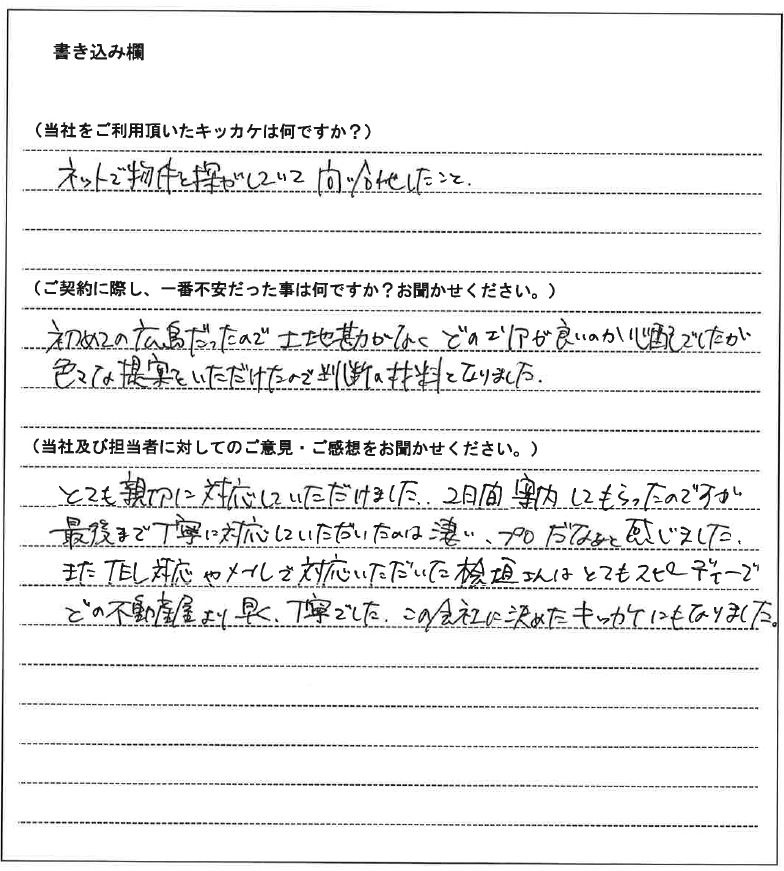 書き込み欄
（当社をご利用頂いたキッカケは何ですか？）
ネットで物件を探がしていて問い合せしたこと.
（ご契約に際し、一番不安だった事は何ですか？お聞かせください。）
初めての広島だったので土地勘がなく どのエリアが良いのか心配でしたが
色々な提案をいただけたので判断の材料となりました.
（当社及び担当者に対してのご意見・ご感想をお聞かせください。）
とても親切に対応していただけました. 2日間案内してもらったのですが
最後まで丁寧に対応していただいたのは凄い、プロだなあと感じました.
またTEL対応やメールで対応いただいた桧垣さんはとてもスピーディーで
どの不動産屋より早く、丁寧でした. この会社に決めたキッカケにもなりました。